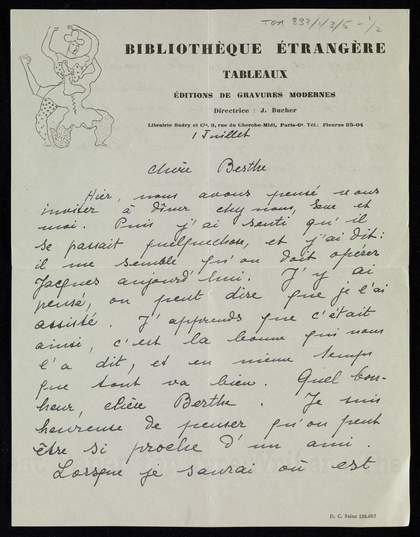 TGA 897/1/2/5 - 1/2
BIBLIOTHÈQUE ÉTRANGÈRE
TABLEAUX
ÉDITIONS DE GRAVURES MODERNES
Directrice : J. Bucher
Librairie Budry et Cie, 3, rue du Cherche-Midi, Paris-6e Tél.: Fleurus 25-04
1 Juillet
Chère Berthe
Hier, nous avons pensé vous
inviter à dîner chez nous, et
moi. Puis j'ai senti qu'il
se passait quelquechose, et j'ai dit :
il me semble qu'on doit opérer
Jacques aujourd'hui. J'y ai
pensé, on peut dire que je l'ai
assisté. J'apprends que c'était
ainsi, c'est la bonne qui nous
l'a dit, et en même temps
que tout va bien. Quel bon-
heur, chère Berthe. Je suis
heureuse de penser qu'on peut
être si proche d'un ami.
Lorsque je saurai où est